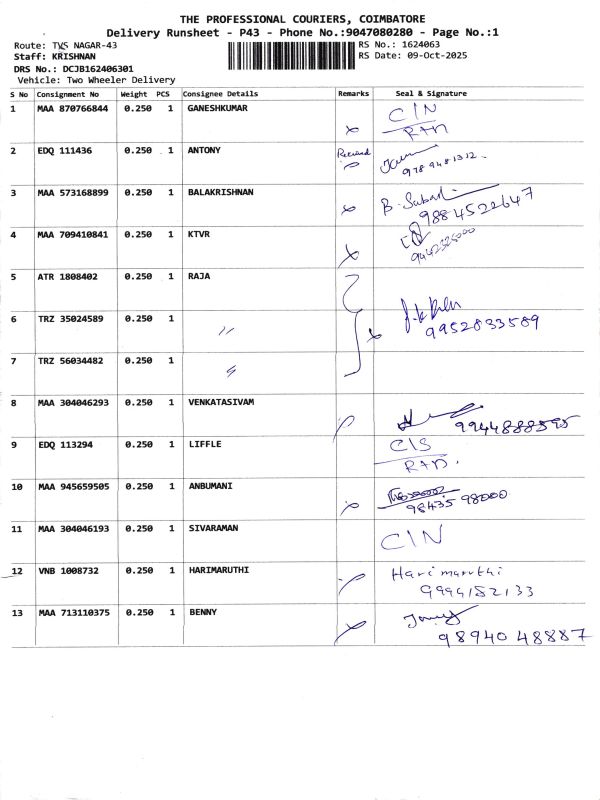 THE PROFESSIONAL COURIERS, COIMBATORE
Delivery Runsheet - P43 - Phone No.:9047080280 - Page No.:1
Route: TVS NAGAR-43
RS No.: 1624063
Staff: KRISHNAN
RS Date: 09-Oct-2025
DRS No.: DCJB162406301
Vehicle: Two Wheeler Delivery
S No Consignment No Weight PCS Consignee Details Remarks Seal & Signature
1 MAA 870766844 0.250 1 GANESHKUMAR C/N
2 EDQ 111436 0.250 1 ANTONY
3 MAA 573168899 0.250 1 BALAKRISHNAN
9884522647
4 MAA 709410841 0.250 1 KTVR
5 ATR 1808402 0.250 1 RAJA
6 TRZ 35024589 0.250 1 〃
9952833589
7 TRZ 56034482 0.250 1 〃
8 MAA 304046293 0.250 1 VENKATASIVAM
9944888595
9 EDQ 113294 0.250 1 LIFFLE C/S
10 MAA 945659505 0.250 1 ANBUMANI
98435 98000
11 MAA 304046193 0.250 1 SIVARAMAN C/N
12 VNB 1008732 0.250 1 HARIMARUTHI Harimaruthi
9994152133
13 MAA 713110375 0.250 1 BENNY
98940 48887